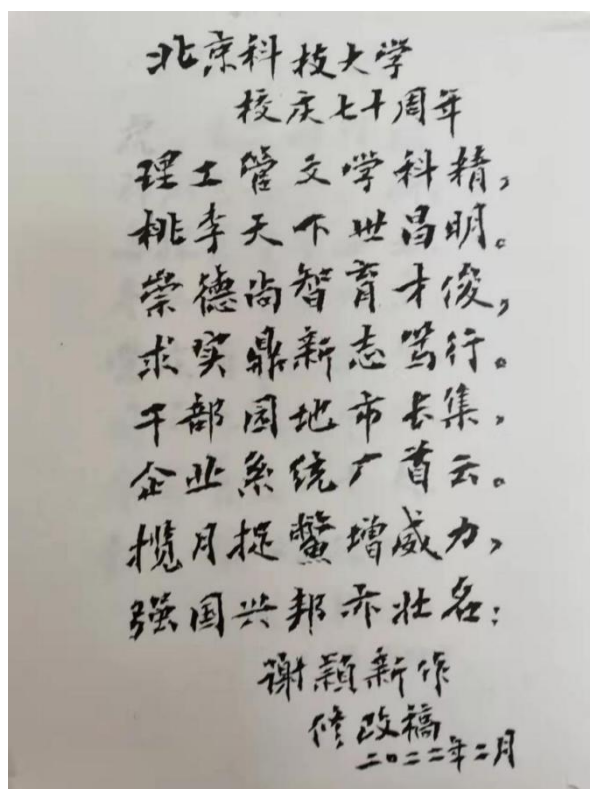 北京科技大学
校庆七十周年
理工管文学科精，
桃李天下世昌明。
崇德尚智育才俊，
求实鼎新志笃行。
干部园地市长集，
企业系统厂首云。
揽月捉鳖增威力，
强国兴邦亦壮名：
谢颖新作
修改稿
二〇二二年二月